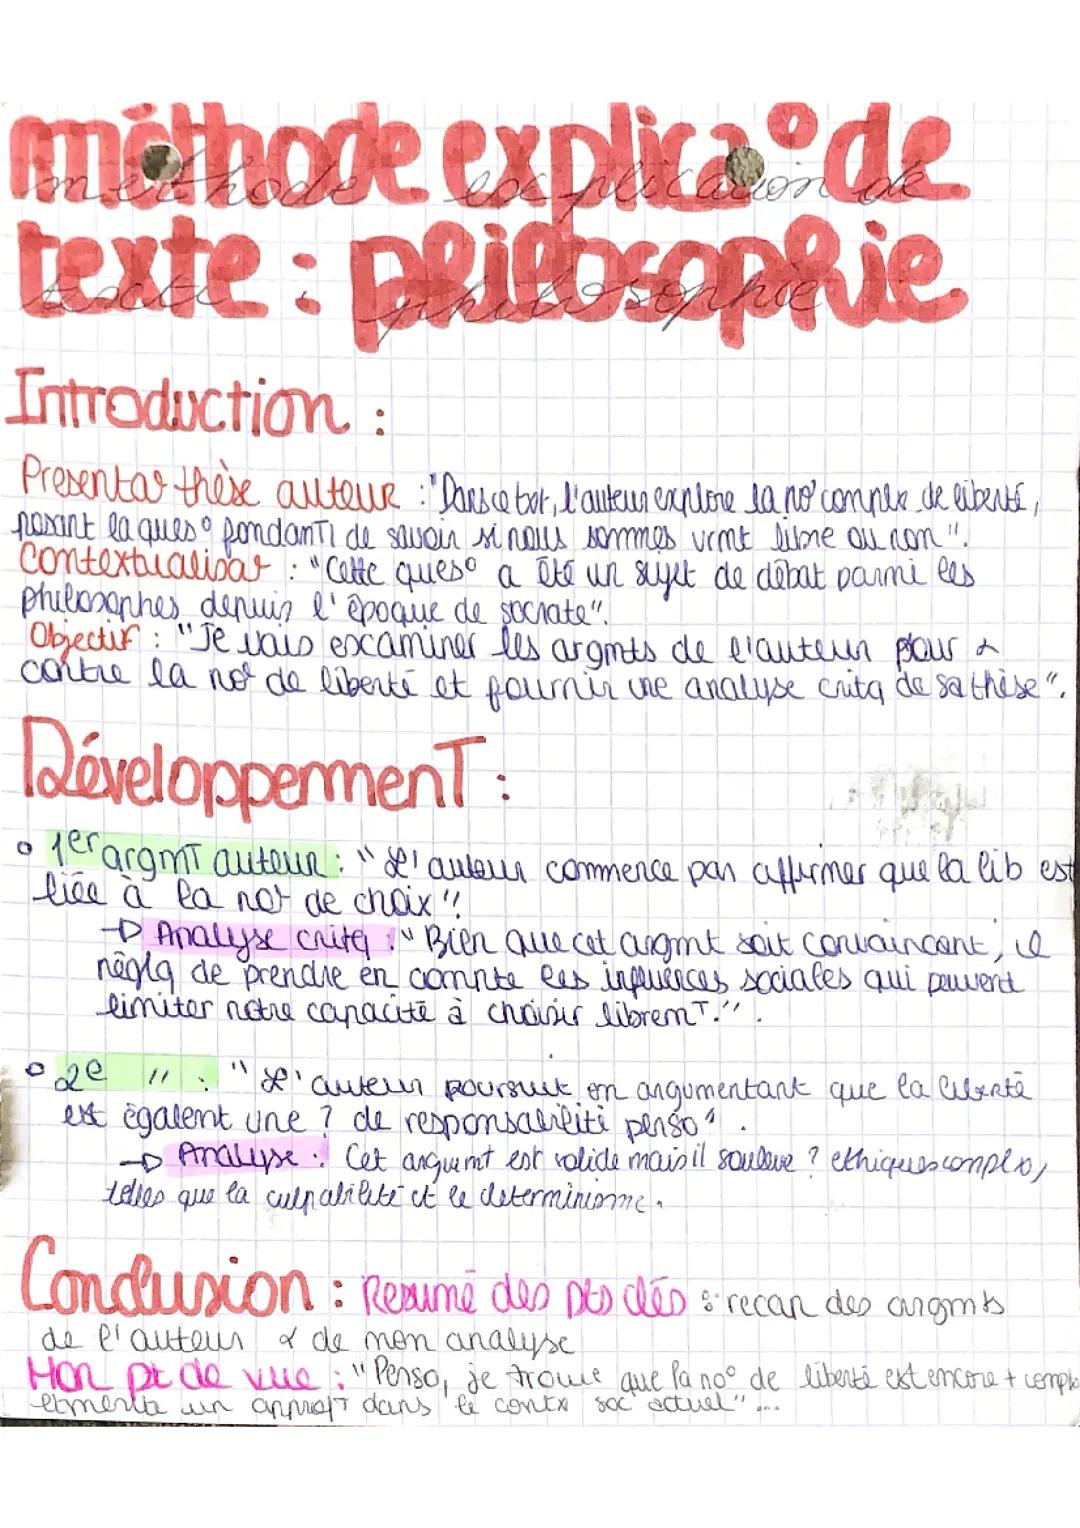 méthode explica° de
methode explication de
texte : philosophie
texte : philosophie
Introduction :
Présentat° thèse auteur : "Dans ce txt, l'auteur explore la no° complex de liberté,
posant la ques° fondamT de savoir si nous sommes vrmt libre ou non".
Contextualisat° : "Cette ques° a été un sujet de débat parmi les
philosophes depuis l'époque de socrate".
Objectif : "Je vais examiner les argmts de l'auteur pour &
contre la not° de liberté et fournir une analyse critq de sa thèse".
DéveloppemenT :
1er argmT auteur : "L'auteur commence par affirmer que la lib est
liée à la not° de choix".
→ Analyse critq : "Bien que cet argmt soit convaincant, il
néglg de prendre en compte les influences sociales qui peuvent
limiter notre capacité à choisir libremT.".
2e " : "L'auteur poursuit en argumentant que la liberté
est égalemt une ? de responsabilité perso".
→ Analyse : Cet argumt est valide mais il soulève ? ethiques complx,
telles que la culpabilité et le determinisme.
Conclusion : Résumé des pts clés : recap des argmts
de l'auteur & de mon analyse
Mon pt de vue : "Perso, je trouve que la no° de liberté est encore + complx
et mérite un approfT dans le contx soc actuel"...